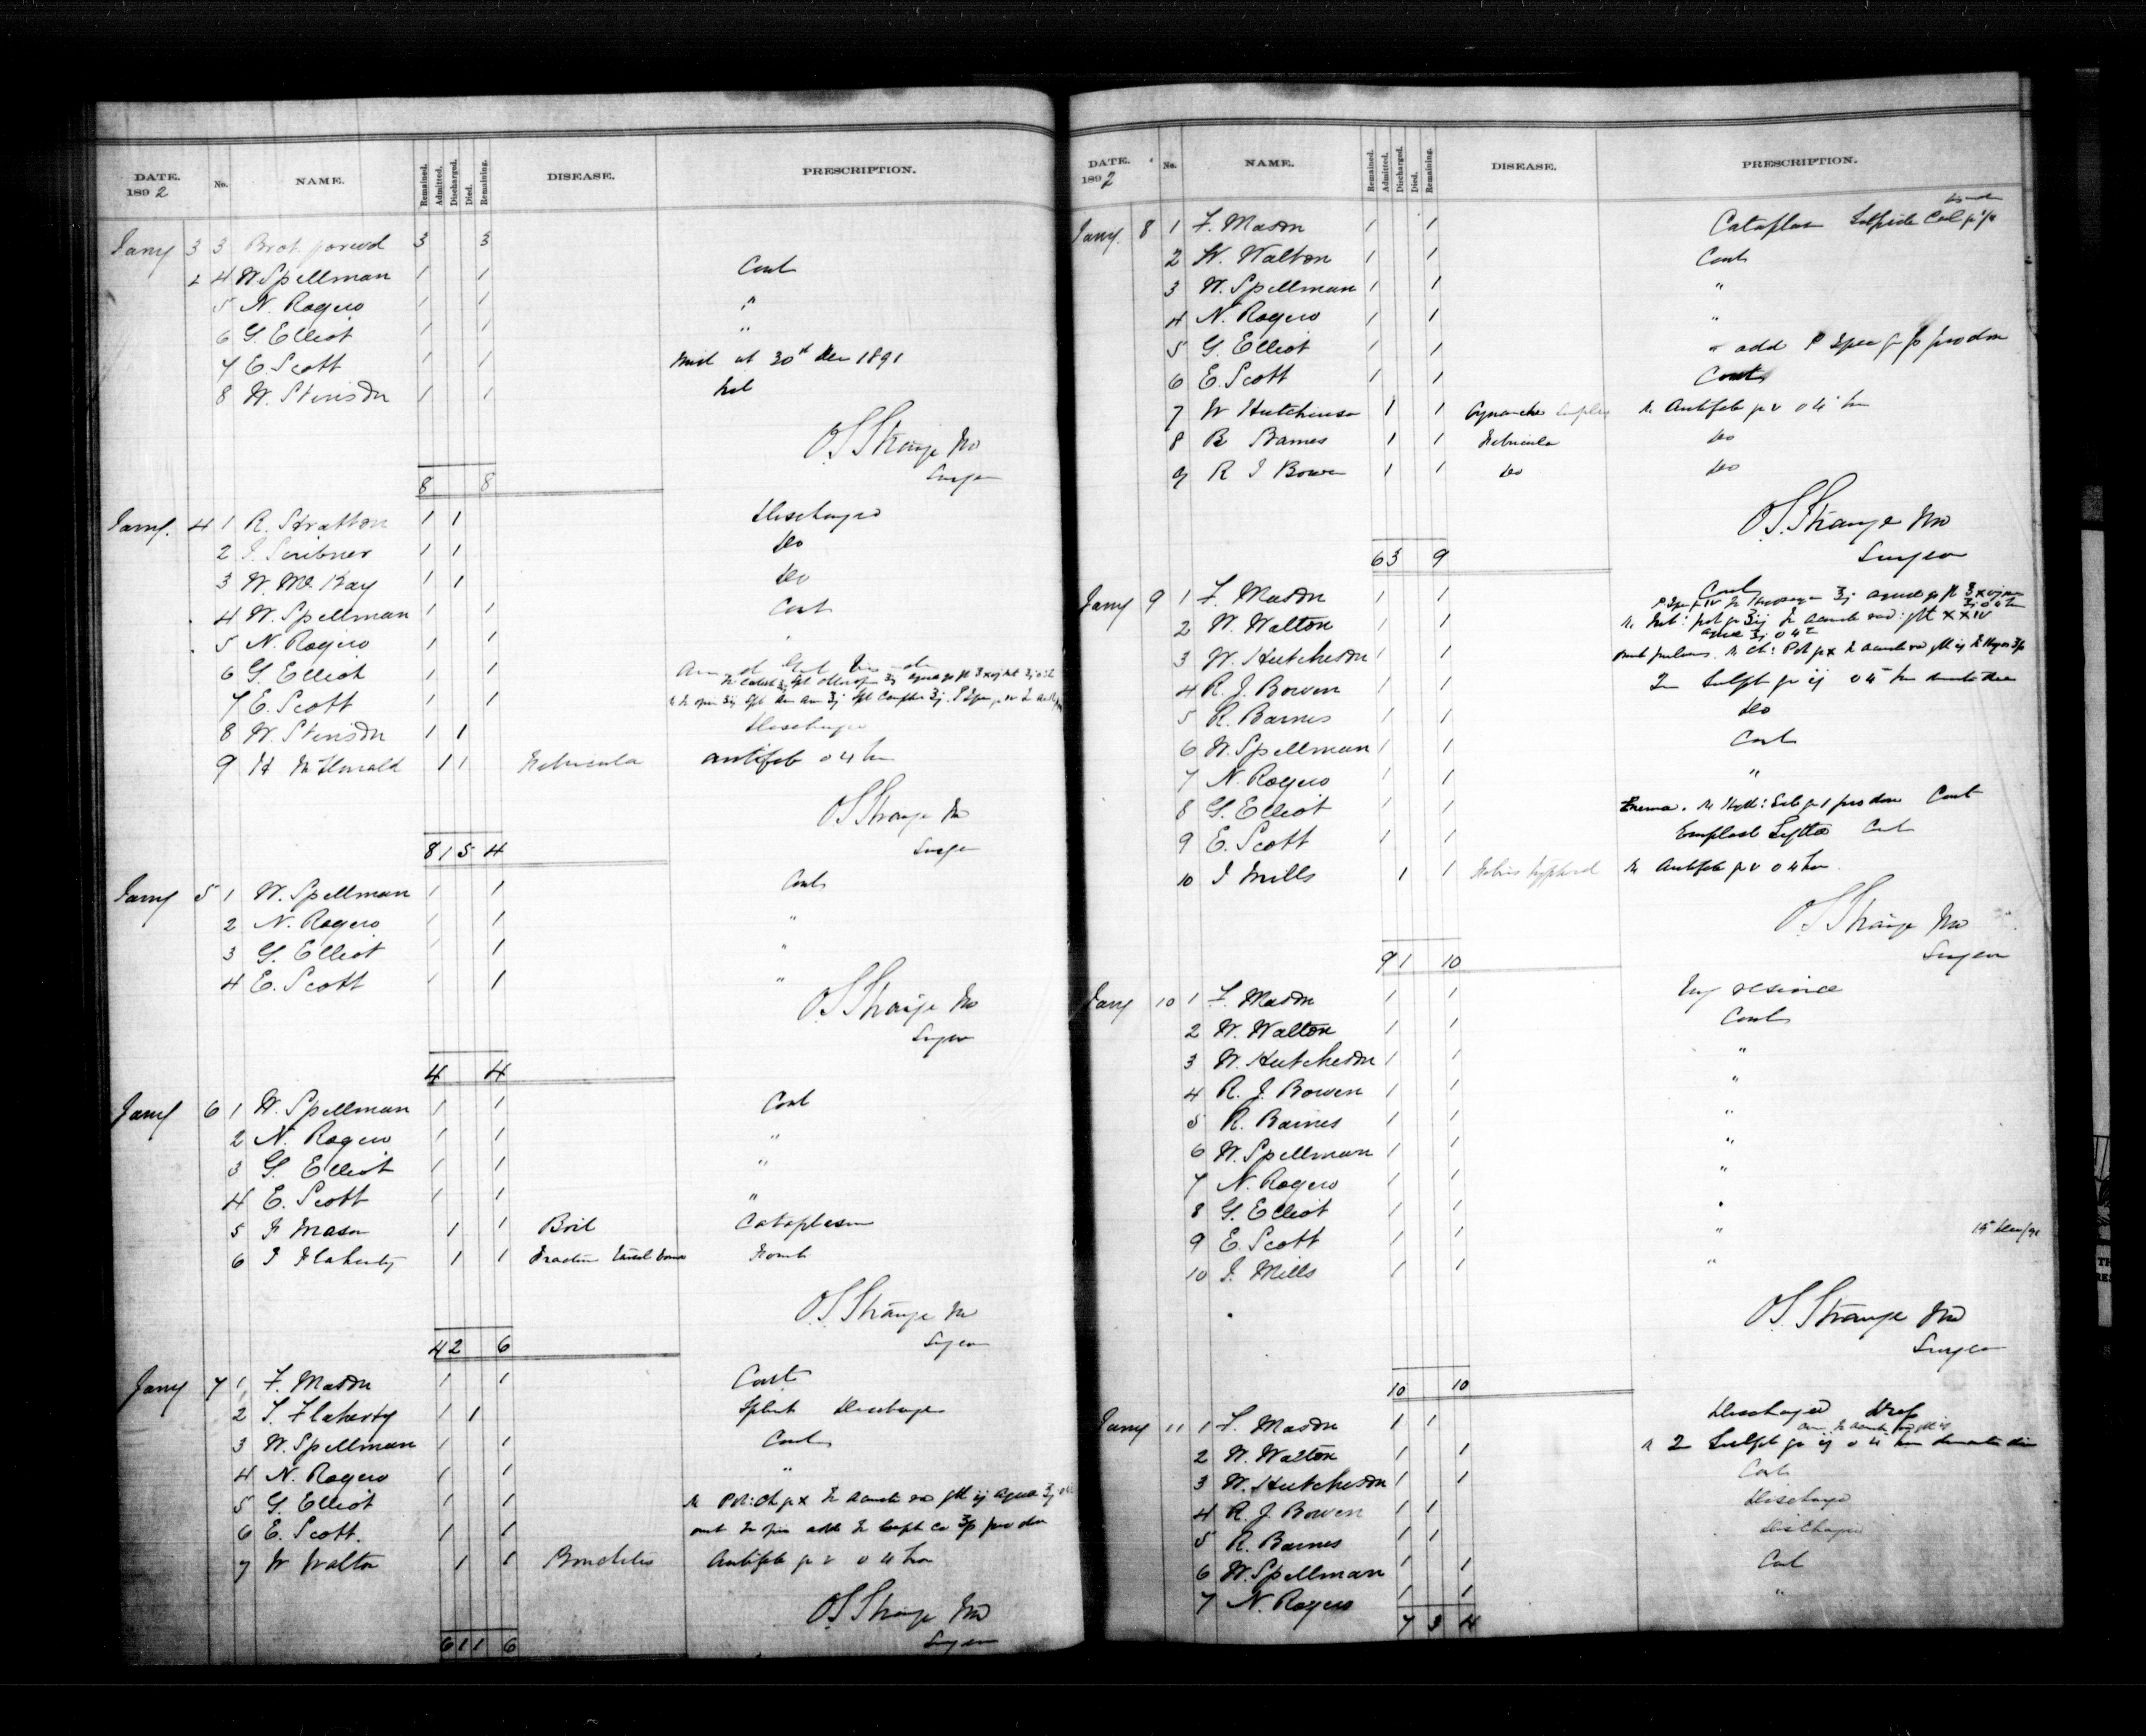 DATE. 1892 No. NAME. Remained. Admitted. Discharged. Died. Remaining. DISEASE. PRESCRIPTION.
Jany 3 3 Brot forwd 3 3
4 W. Spellman 1 1 Cont
5 N. Rogers 1 1 "
6 G. Elliot 1 1 "
7 E. Scott 1 1 at 30th Dec 1891
8 W. Stinson 1 1
O S Strange MD
Surgeon
8 8
Jany. 4 1 R. Stratton 1 1 Discharged
2 J. Scribner 1 1 Do
3 W. McKay 1 1 Do
4 W. Spellman 1 1 Cont
5 N. Rogers 1 1 "
6 G. Elliot 1 1
7 E. Scott 1 1
8 W. Stinson 1 1 Discharged
9 H McDonald 1 1 Febricula antifeb 4 hr
O S Strange MD
Surgeon
8 1 5 4
Jany 5 1 W. Spellman 1 1 Cont
2 N. Rogers 1 1 "
3 G. Elliot 1 1 "
4 E. Scott 1 1 "
O S Strange MD
Surgeon
4 4
Jany 6 1 W. Spellman 1 1 Cont
2 N. Rogers 1 1 "
3 G. Elliot 1 1 "
4 E. Scott 1 1 "
5 F Mason 1 1 Boil Cataplasm
6 J Flaherty 1 1 Fracture Foment
O. S. Strange MD
Surgeon
4 2 6
Jany 7 1 F. Mason 1 1 Cont
2 J. Flaherty 1 1 Splint Discharged
3 W. Spellman 1 1 Cont
4 N. Rogers 1 1 "
5 G. Elliot 1 1
6 E. Scott. 1 1
7 W Walton 1 1 Bronchitis Antifeb gr v 4 hr
O S Strange MD
Surgeon
6 1 1 6
DATE. 1892 No. NAME. Remained. Admitted. Discharged. Died. Remaining. DISEASE. PRESCRIPTION.
Jany. 8 1 F. Mason 1 1 Cataplasm Sulphide Cal
2 W. Walton 1 1 Cont
3 W. Spellman 1 1 "
4 N. Rogers 1 1 "
5 G. Elliot 1 1 " add P Ipec
6 E. Scott 1 1 Cont
7 W Hutchinson 1 1 Cynanche Antifeb gr v 4 hr
8 R Barnes 1 1 Febricula Do
9 R J Bowen 1 1 Do Do
O. S. Strange MD
Surgeon
6 3 9
Jany 9 1 F. Mason 1 1 Cont
2 W. Walton 1 1
3 W. Hutcheson 1 1
4 R. J. Bowen 1 1 Sulph gr ij 4 hr
5 R. Barnes 1 1 Do
6 W. Spellman 1 1 Cont
7 N. Rogers 1 1 "
8 G. Elliot 1 1 Enema. Cont
9 E. Scott 1 1 Emplast Lyttae Cont
10 J Mills 1 1 Febris typhoid Antifeb gr v 4 hr.
O S Strange MD
Surgeon
9 1 10
Jany 10 1 F. Mason 1 1 Ung resinae
2 W. Walton 1 1 Cont
3 W. Hutcheson 1 1 "
4 R. J. Bowen 1 1 "
5 R. Barnes 1 1 "
6 W. Spellman 1 1 "
7 N. Rogers 1 1 "
8 G. Elliot 1 1 "
9 E. Scott 1 1 "
10 J. Mills 1 1 "
O. S. Strange MD
Surgeon
10 10
Jany 11 1 F. Mason 1 1 Discharged
2 W. Walton 1 1 Sulph gr ij 4 hr
3 W. Hutcheson 1 1 Cont
4 R. J. Bowen 1 1 Discharged
5 R. Barnes 1 1 Discharged
6 W. Spellman 1 1 Cont
7 N. Rogers 1 1 "
7 3 4